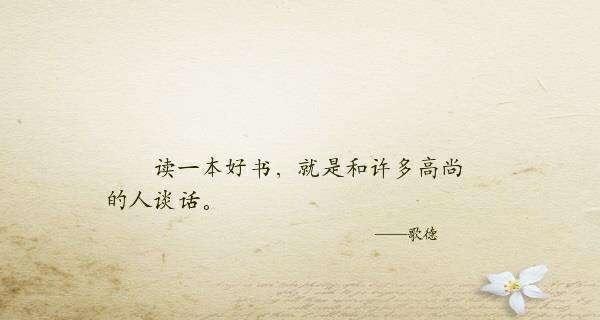 读一本好书，就是和许多高尚
的人谈话。
——歌德